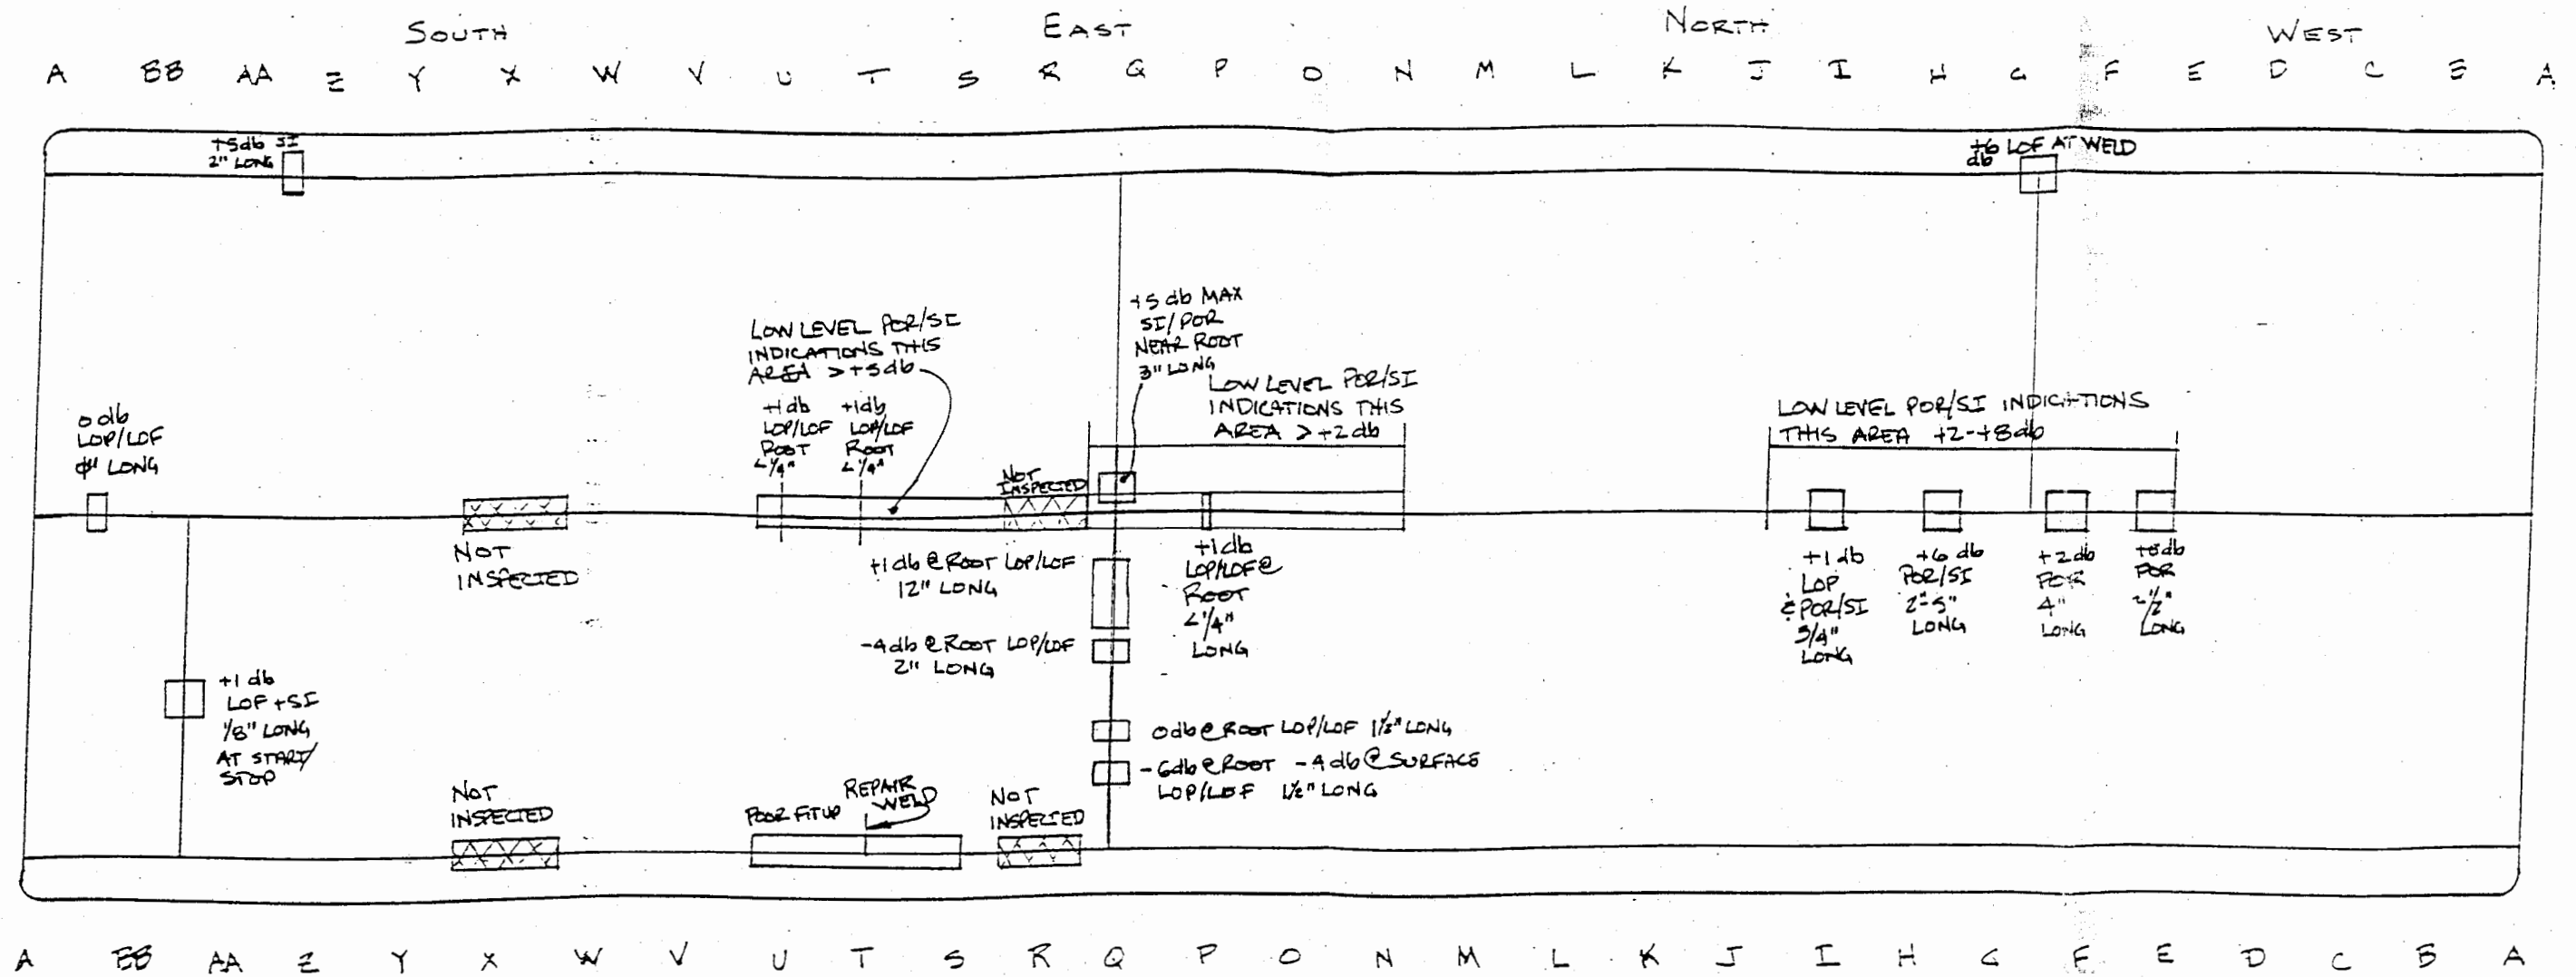 SOUTH EAST NORTH WEST
A BB AA Z Y X W V U T S R Q P O N M L K J I H G F E D C B A
+5db SI
2" LONG
+6 LOF AT WELD
db
+5 db MAX
SI/POR
NEAR ROOT
3" LONG
LOW LEVEL POR/SI
INDICATIONS THIS
AREA >+5db
LOW LEVEL POR/SI
INDICATIONS THIS
AREA >+2db
LOW LEVEL POR/SI INDICATIONS
THIS AREA +2-+8db
0 db
LOP/LOF
LONG
+1db
LOP/LOF
ROOT
<1/4"
+1db
LOP/LOF
ROOT
<1/4"
NOT
INSPECTED
NOT
INSPECTED
+1db @ ROOT LOP/LOF
12" LONG
-4db @ ROOT LOP/LOF
2" LONG
+1db
LOP/LOF @
ROOT
<1/4"
LONG
+1 db
LOP
& POR/SI
3/4"
LONG
+6 db
POR/SI
2"-5"
LONG
+2db
POR
4"
LONG
POR
LONG
+1 db
LOF + SI
1/8" LONG
AT START/
STOP
0db @ ROOT LOP/LOF 1 1/2" LONG
-6db @ ROOT -4db @ SURFACE
LOP/LOF 1 1/2" LONG
NOT
INSPECTED
POOR FIT UP
REPAIR
WELD
NOT
INSPECTED
A BB AA Z Y X W V U T S R Q P O N M L K J I H G F E D C B A